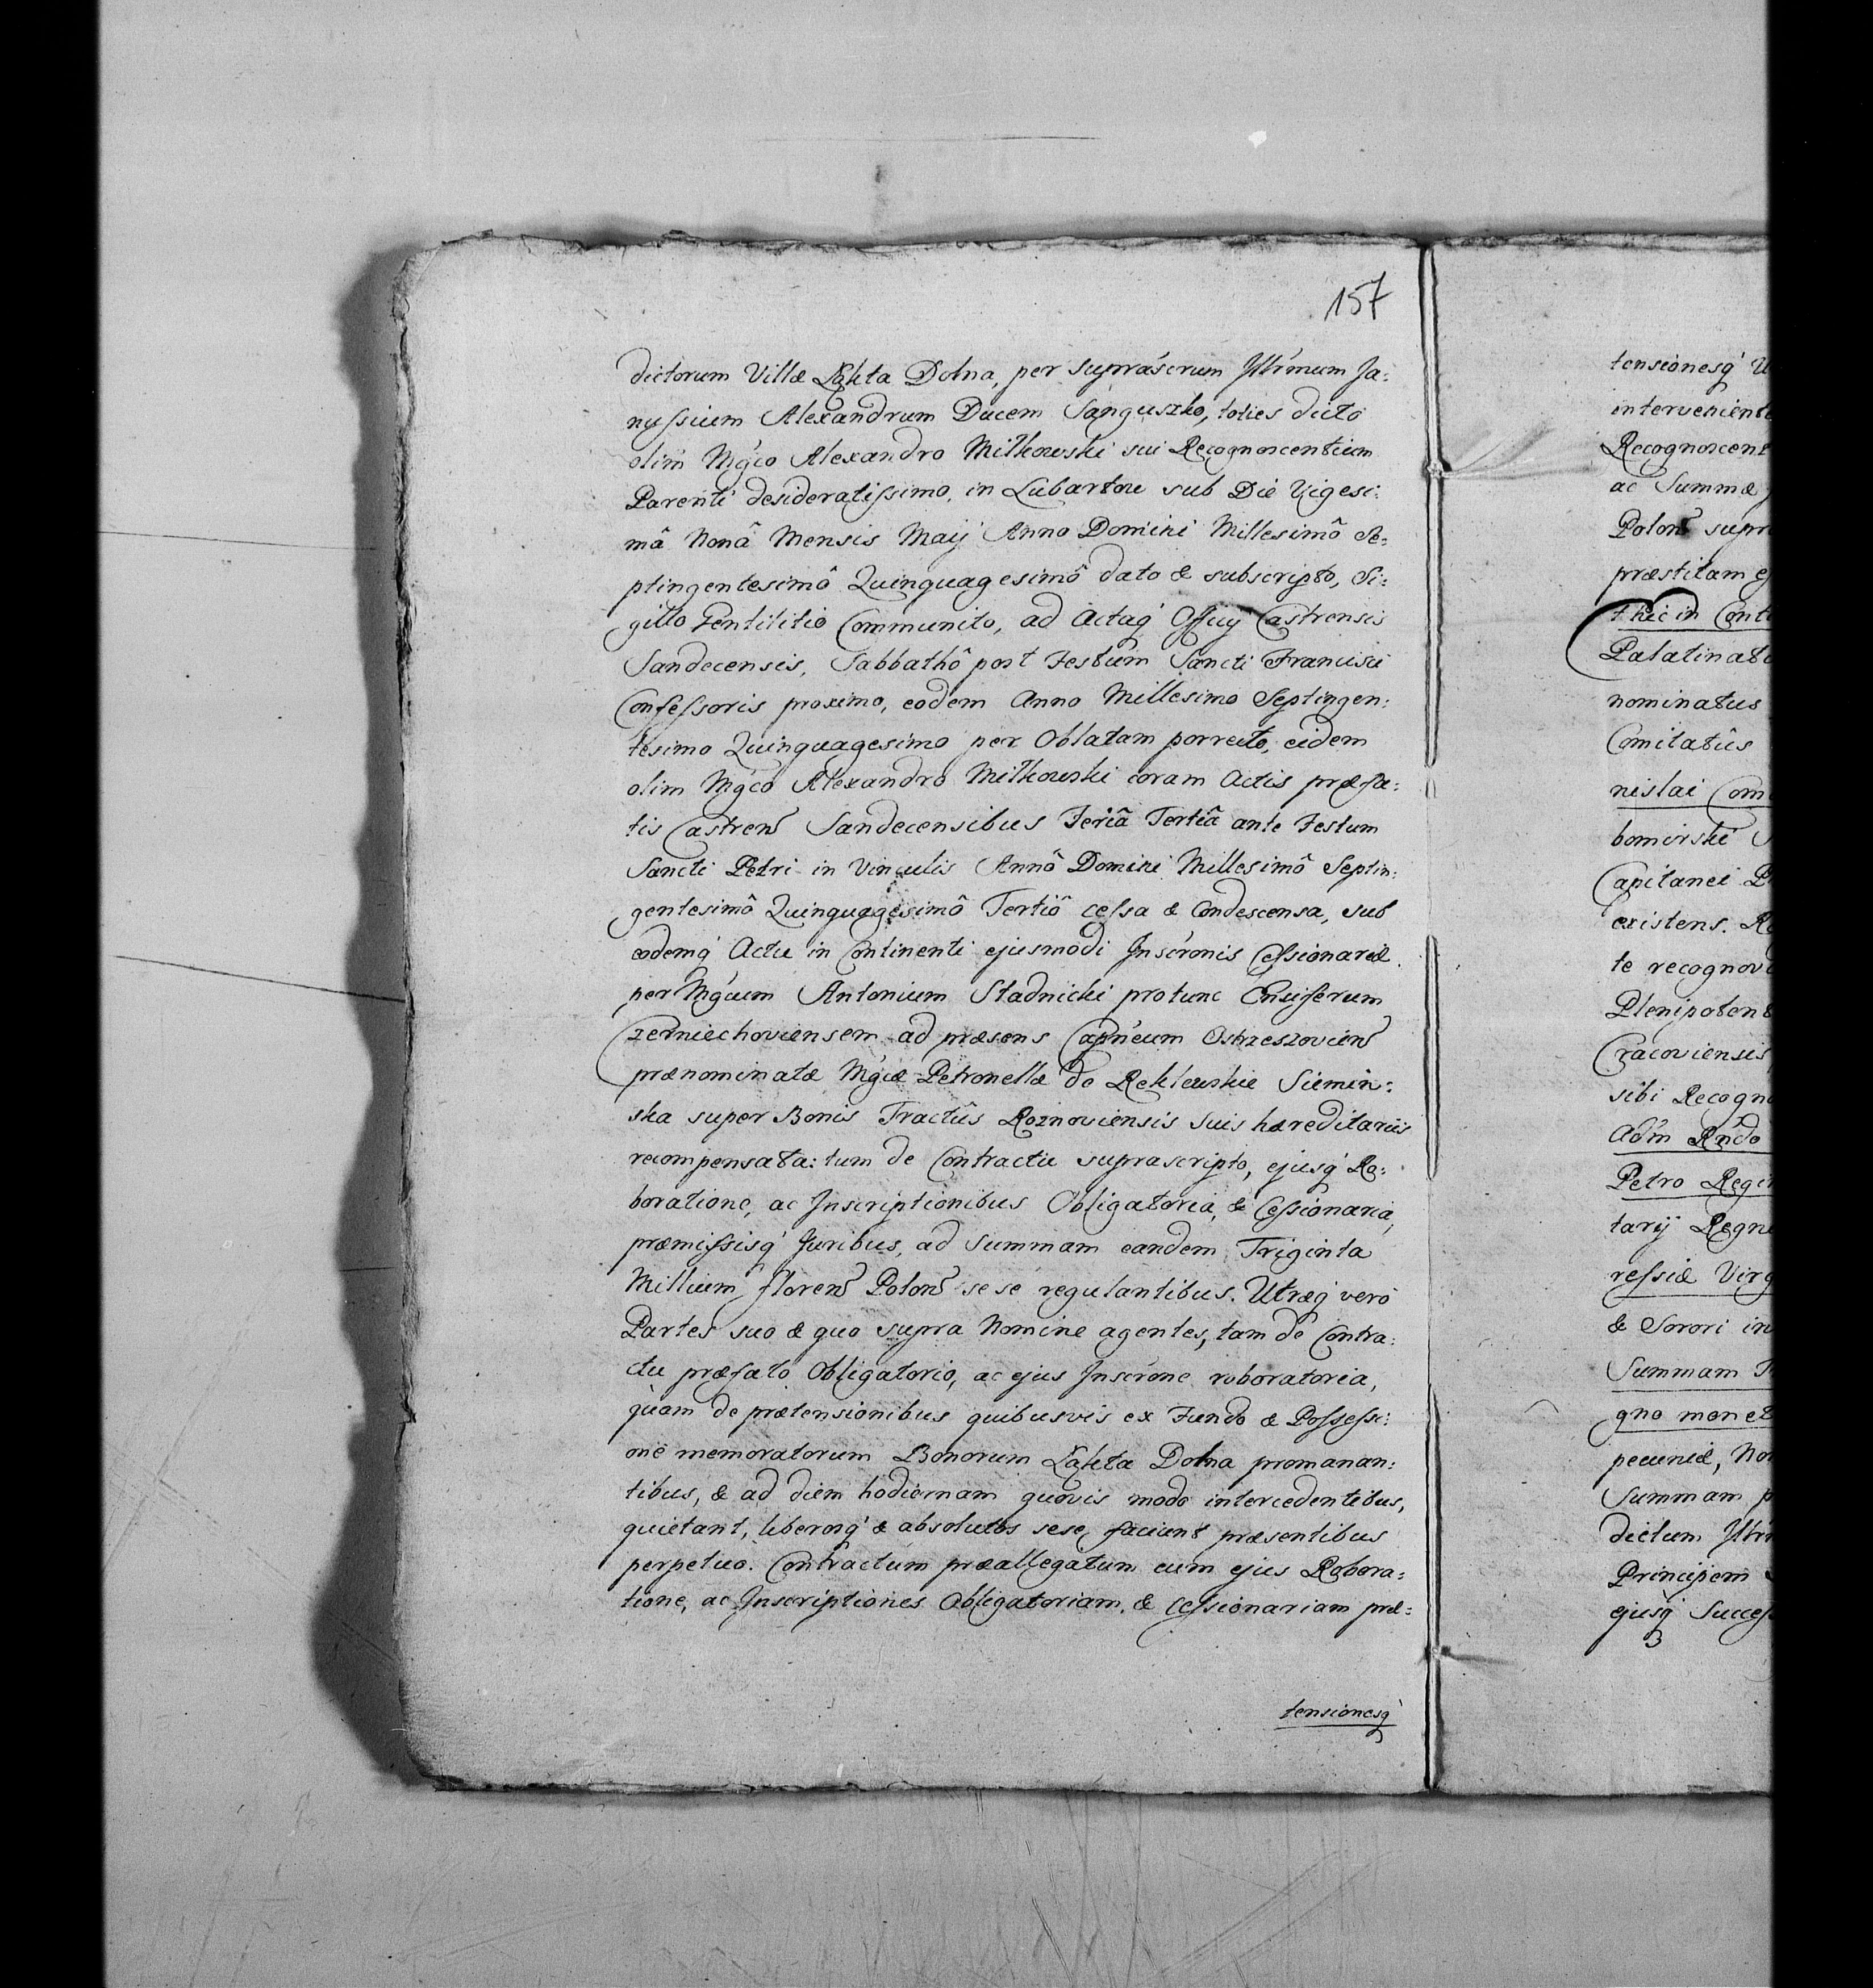 157
dictorum Villæ Łąkta Dolna, per suprascrum Illrmum Ja:
nussium Alexandrum Ducem Sanguszko, toties dicto
olim Mgco Alexandro Miłkowski sui Recognoscentium
Parenti desideratissimo, in Lubartow sub Die Vigesi:
mâ Nonâ Mensis Maij Anno Domini Millesimô Se:
ptingentesimô Quinquagesimô dato & subscripto, Si:
gillo Gentilitio Communito, ad Actaq Officij Castrensis
Sandecensis, Sabbathô post Festum Sancti Francisci
Confessoris proximo, eodem Anno Millesimo Septingen:
tesimo Quinquagesimo per Oblatam porrecto, eidem
olim Mgco Alexandro Miłkowski coram Actis præfa:
tis Castren Sandecensibus Feriâ Tertiâ ante Festum
Sancti Petri in Vinculis Annô Domini Millesimô Septin:
gentesimô Quinquagesimô Tertiô cessa & Condescensa, sub
eodemq Actu in Continenti ejusmodi Inscronis Cessionariæ
per Mgcum Antonium Stadnicki protunc Ensiferum
Czerniechoviensem ad præsens Capneum Ostrzeszovien
prænominatæ Mgcæ Petronellæ de Reklewskie Siemin:
ska super Bonis Tractûs Roznoviensis suis hæreditariis
recompensata: tum de Contractu suprascripto, ejusq Ro:
boratione, ac Inscriptionibus Obligatoria, & Cessionaria,
præmissisq Juribus, ad Summam eandem Triginta
Millium floren Polon sese regulantibus. Utræq verò
Partes suo & quo supra Nomine agentes, tam de Contra:
ctu præfato Obligatorio, ac ejus Inscrone roboratoria,
quam de prætensionibus quibusvis ex Fundo & Possessi:
one memoratorum Bonorum Łąkta Dolna promanan:
tibus, & ad diem hodiernam quovis modo intercedentibus,
quietant, liberosq & absolutos sese faciunt præsentibus
perpetuo. Contractum præallegatum cum ejus Robora:
tione, ac Inscriptiones Obligatoriam, & Cessionariam præ:
tensionesq
tensionesq
Recognoscent
ac Summæ
Polon
præstitam
Palatinat
nominatus
Comitatûs
nislai Com
bomirski
Capitanei
existens.
te recognov
Plenipotent
Cracoviensis
sibi Recogn
Adm Rndo
Petro
tarij Regn
ressiæ Virg
& Sorori in
Summam
gno monet
pecuniæ, Non
Summam
dictum Illr
Principem
ejusq Success